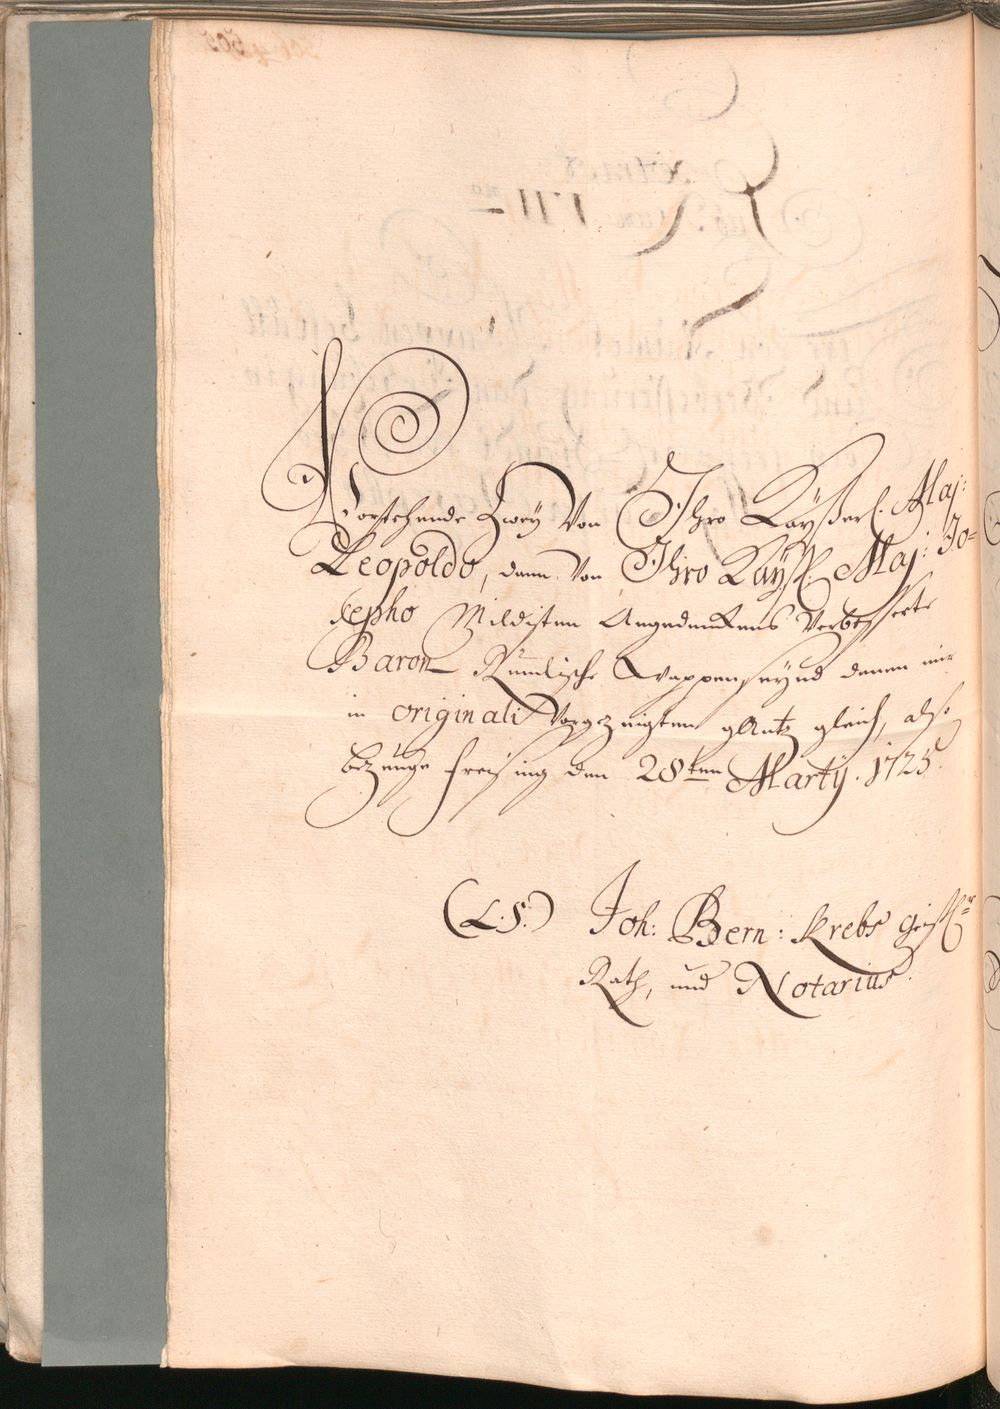 Vorstehende Zwey Von Ihro Kayßerl. Maj:
Leopoldo, dann Von Ihro Kayßl. Maj: Jo-
sepho Mildisten Angedenkens Verbesserte
Baron Rumlische Wappen seynd denen mir
in originali Vorgezeigten gAntz gleich, also
bezeuge freising den 28ten Martij. 1725.
(L.S.) Joh: Bern: Krebs geistl.r
Rath, und Notarius.